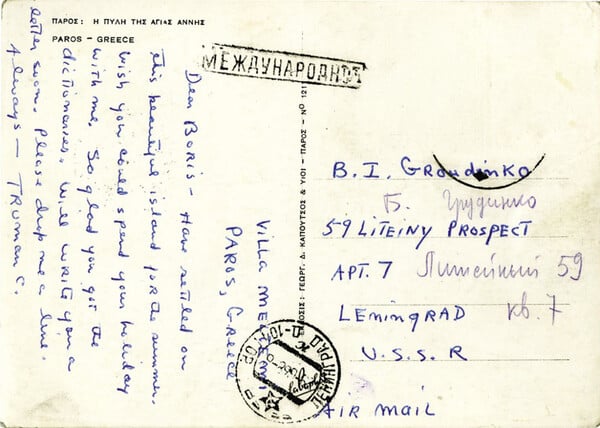 ΠΑΡΟΣ: Η ΠΥΛΗ ΤΗΣ ΑΓΙΑΣ ΑΝΝΗΣ
PAROS - GREECE
МЕЖДУНАРОДНОЕ
Dear Boris - Have settled on
this beautiful island for the summer.
Wish you could spend your holiday
with me. So glad you got the
dictionaries. Will write you a
letter soon. Please drop me a line.
Always - Truman C.
Villa Meltemi
PAROS, Greece
ΓΕΩΡΓ. Δ. ΚΑΠΟΥΤΣΟΣ & ΥΙΟΙ - ΠΑΡΟΣ - Νο 121
B. I. Groudinko
Б. Грудинко
59 LITEINY PROSPECT
APT. 7 Литейный 59
LENINGRAD кв. 7
U.S.S.R
AIR MAIL